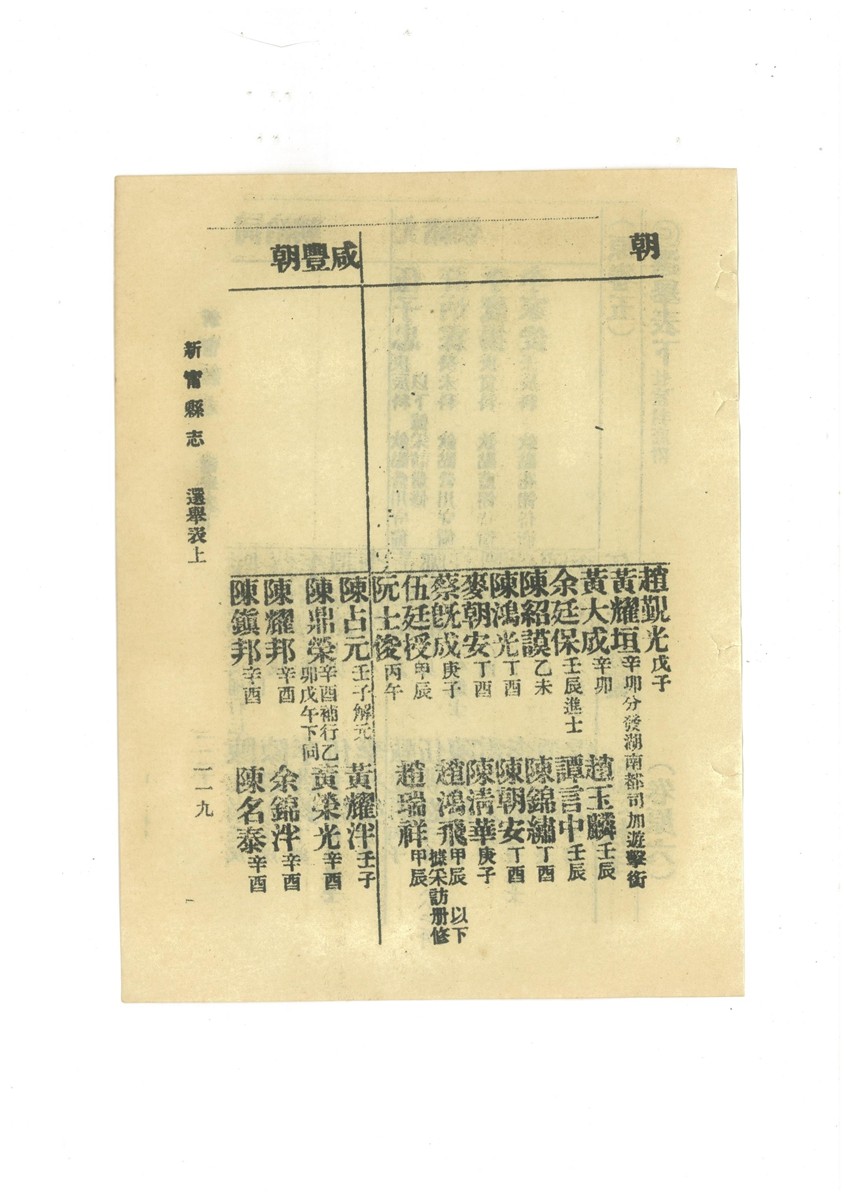 朝
趙覲光戊子
黃耀垣辛卯分發湖南都司加遊擊銜
黃大成辛卯 趙玉麟壬辰
余廷保壬辰進士 譚言中壬辰
陳紹謨乙未 陳錦繡丁酉
陳鴻光丁酉 陳朝安丁酉
麥朝安丁酉 陳清華庚子
蔡旣成庚子 趙鴻飛甲辰 以下據采訪册修
伍廷授甲辰 趙瑞祥甲辰
阮士俊丙午
咸豐朝
陳占元壬子解元 黃耀泮壬子
陳鼎榮辛酉補行乙卯戊午下同 黃榮光辛酉
陳耀邦辛酉 余錦泮辛酉
陳鎮邦辛酉 陳名泰辛酉
新甯縣志 選舉表上 一一九